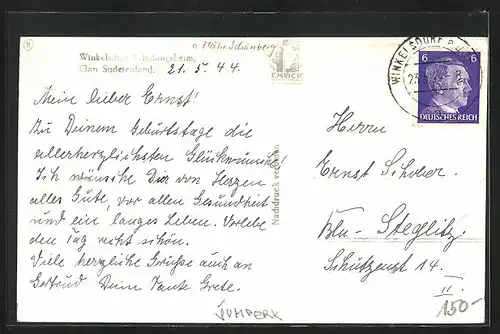 o Mähr. Schönberg
Winkelsdorf, Erholungsheim,
Gau Sudetenland. 21. 5. 44.
Mein lieber Ernst!
Zu Deinem Geburtstage die
allerherzlichsten Glückwünsche!
Ich wünsche Dir von Herzen
alles Gute, vor allen Gesundheit
und ein langes Leben. Verlebe
den Tag recht schön.
Viele herzliche Grüsse auch an
Gertrud Deine Tante Grete.
Nachdruck verboten
WINKELSDORF
6 6
DEUTSCHES REICH
Herrn
Ernst
Bln - Steglitz
Schützenst 14.
II.
ŠUMPERK
150-